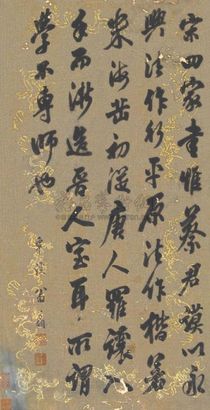 宋四家書惟蔡君謨以永
興法作行平原法作楷
米海岳初從唐人羅讓入
手而漸造晉人室耳所謂
學不專師也